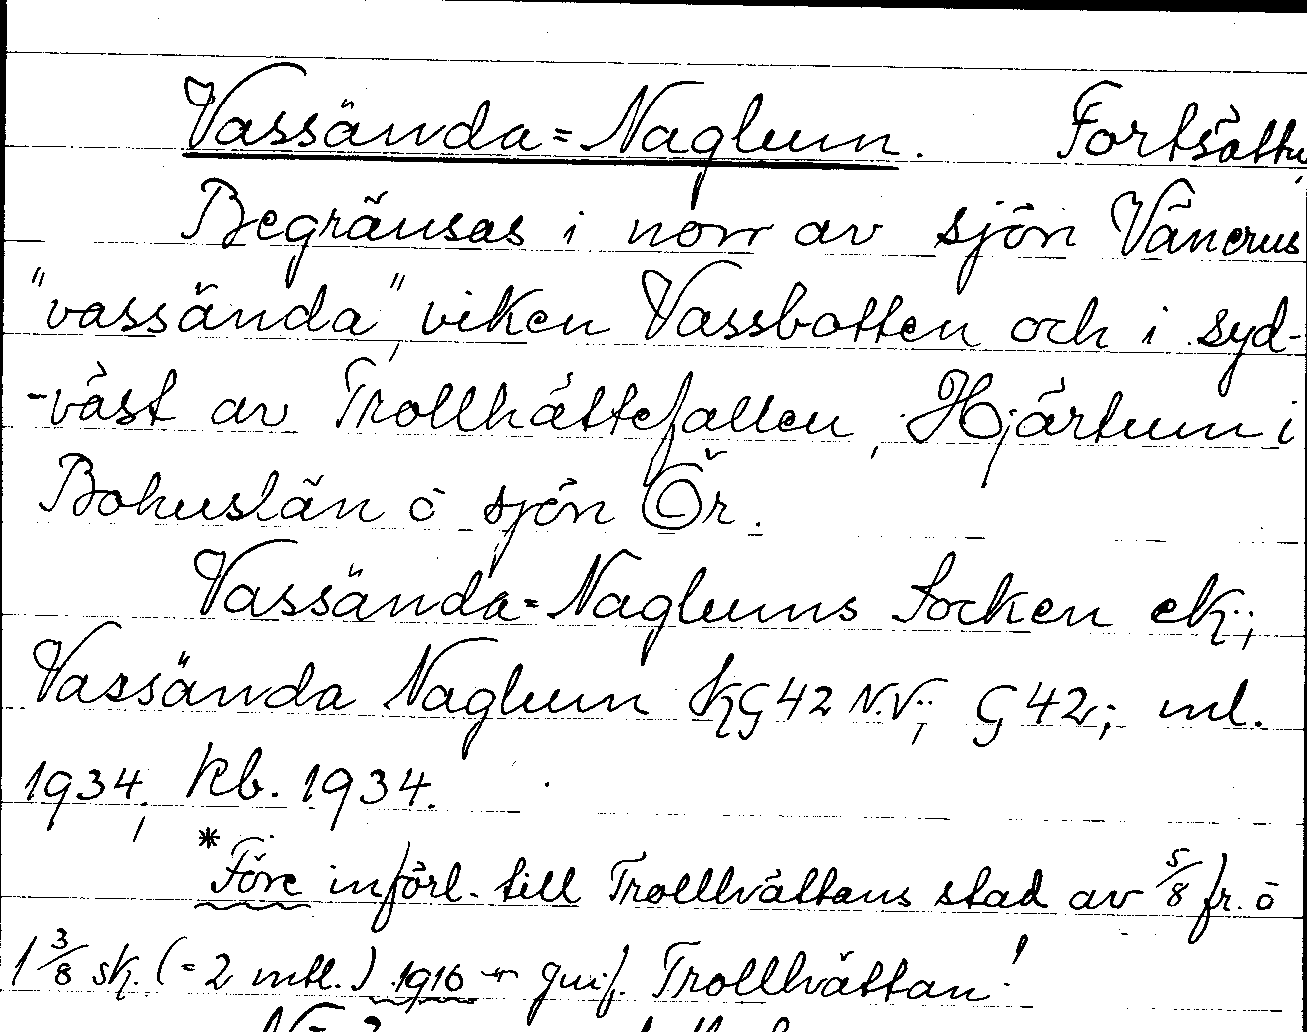 Vassända=Naglum. Fortsättn.
Begränsas i norr av sjön Vänerns
"vassända", viken Vassbotten och i syd-
-väst av Trollhättefallen, Hjärtum i
Bohuslän o sjön Ör.
Vassända=Naglums Socken ek.;
Vassända Naglum KG 42 N.V.; G 42; ml.
1934; kb. 1934.
*Före införl. till Trollhättans stad av 5/8 fr. o
1 3/8 sk. (=2 mtl.) 1916 jmf. Trollhättan!